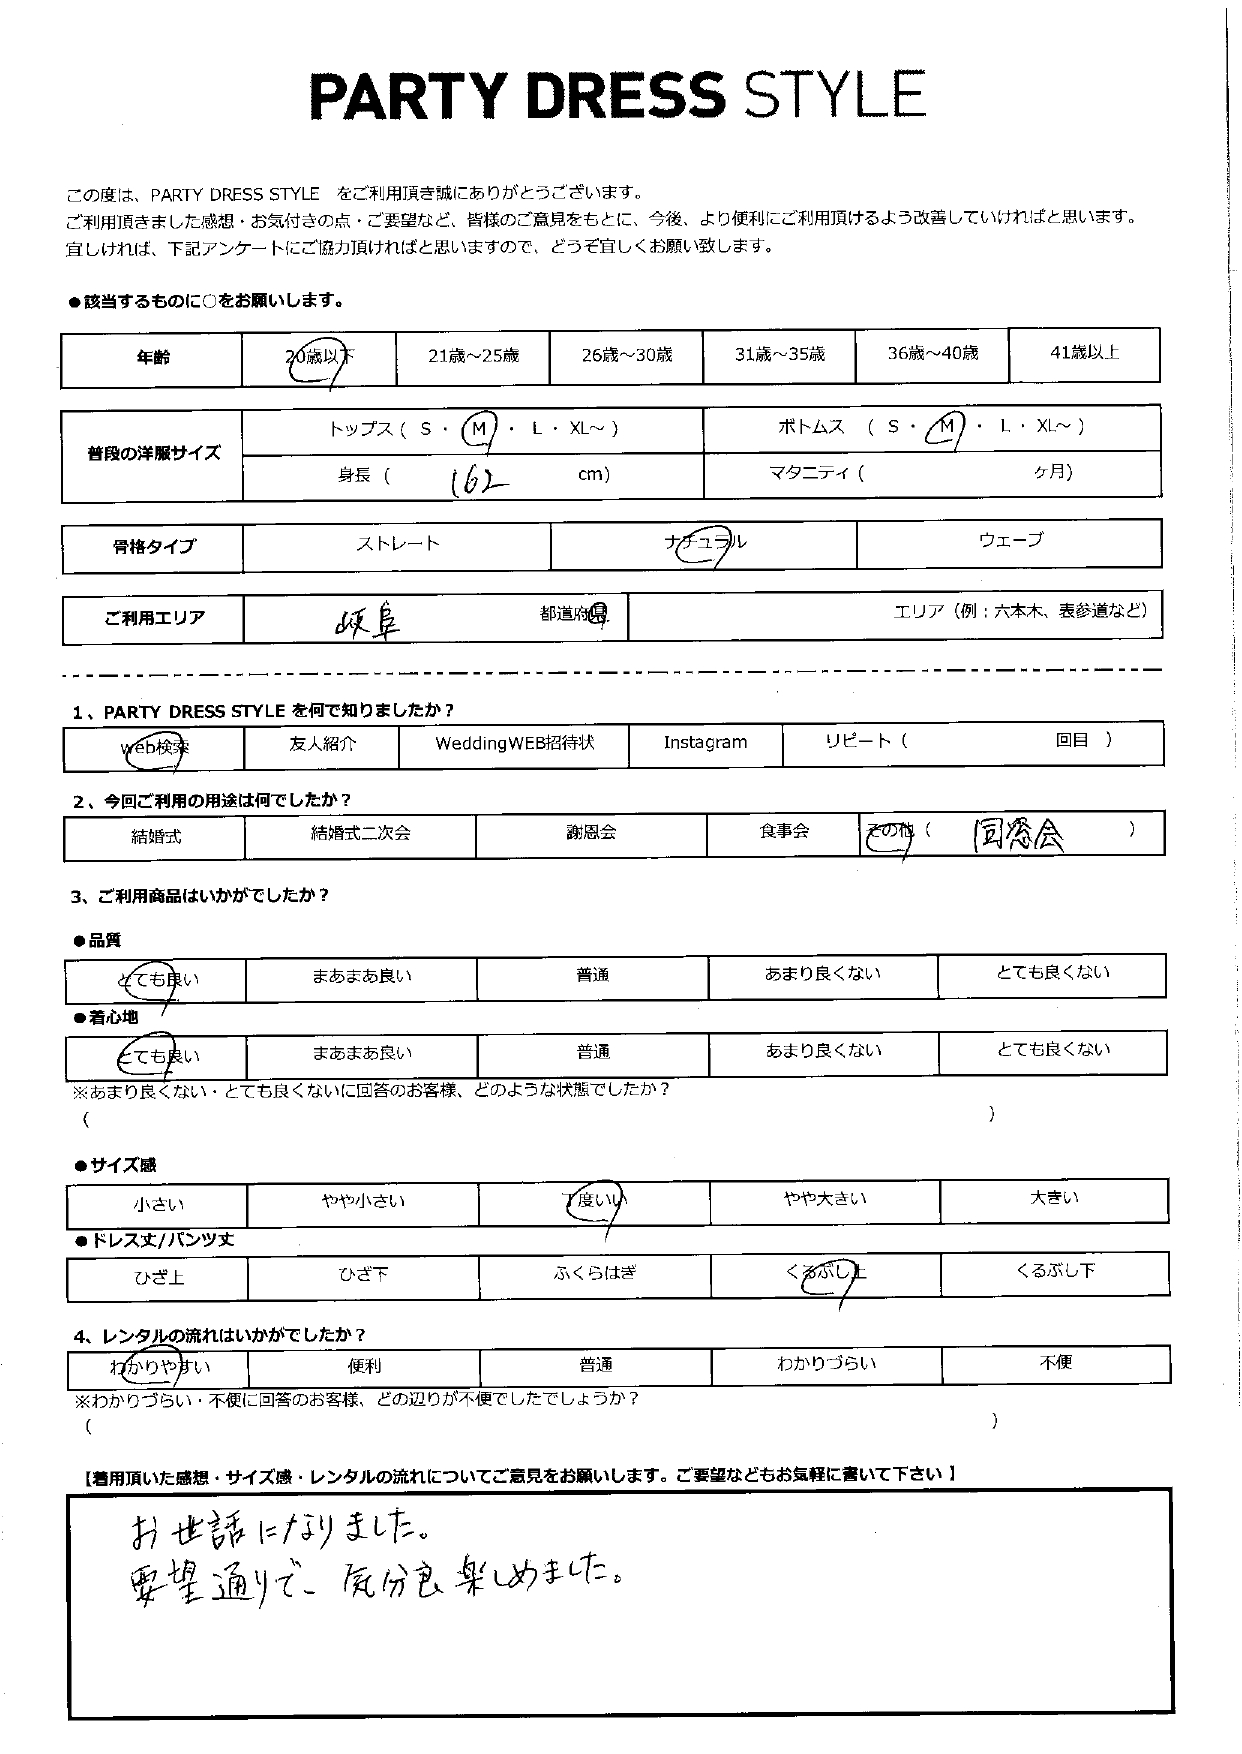 PARTY DRESS STYLE
この度は、PARTY DRESS STYLE をご利用頂き誠にありがとうございます。
ご利用頂きました感想・お気付きの点・ご要望など、皆様のご意見をもとに、今後、より便利にご利用頂けるよう改善していければと思います。
宜しければ、下記アンケートにご協力頂ければと思いますので、どうぞ宜しくお願い致します。
●該当するものに○をお願いします。
年齢 20歳以下 21歳～25歳 26歳～30歳 31歳～35歳 36歳～40歳 41歳以上
普段の洋服サイズ
トップス ( S ・ M ・ L ・ XL～ ) ボトムス ( S ・ M ・ L ・ XL～ )
身長 ( 162 cm) マタニティ ( ヶ月)
骨格タイプ ストレート ナチュラル ウェーブ
ご利用エリア 岐阜 都道府県 エリア（例；六本木、表参道など）
1、PARTY DRESS STYLE を何で知りましたか？
web検索 友人紹介 WeddingWEB招待状 Instagram リピート ( 回目 )
2、今回ご利用の用途は何でしたか？
結婚式 結婚式二次会 謝恩会 食事会 その他 ( 同窓会 )
3、ご利用商品はいかがでしたか？
●品質
とても良い まあまあ良い 普通 あまり良くない とても良くない
●着心地
とても良い まあまあ良い 普通 あまり良くない とても良くない
※あまり良くない・とても良くないに回答のお客様、どのような状態でしたか？
( )
●サイズ感
小さい やや小さい 丁度いい やや大きい 大きい
●ドレス丈/パンツ丈
ひざ上 ひざ下 ふくらはぎ くるぶし上 くるぶし下
4、レンタルの流れはいかがでしたか？
わかりやすい 便利 普通 わかりづらい 不便
※わかりづらい・不便に回答のお客様、どの辺りが不便でしたでしょうか？
( )
【着用頂いた感想・サイズ感・レンタルの流れについてご意見をお願いします。ご要望などもお気軽に書いて下さい】
お世話になりました。
要望通りで、気分良楽しめました。